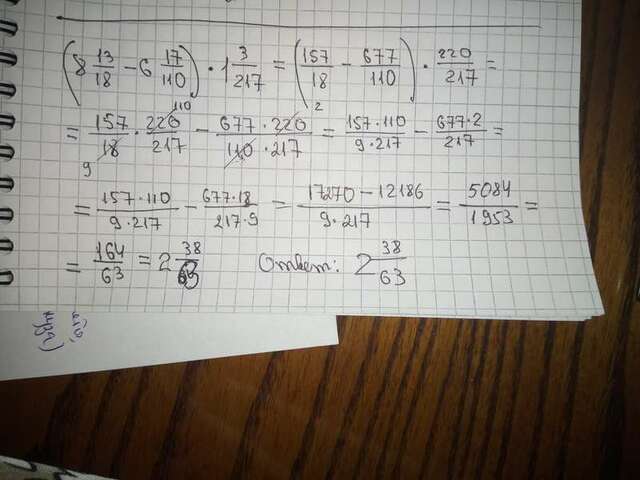 (8 13/18 − 6 17/110) · 1 3/217 = (157/18 − 677/110) · 220/217 =
= 157/18 · 220/217 − 677 · 220/110 · 217 = 157 · 110/9 · 217 − 677 · 2/217 =
110
2
9
= 157 · 110/9 · 217 − 677 · 18/217 · 9 = 17270 − 12186/9 · 217 = 5084/1953 =
= 164/63 = 2 38/63 Ответ: 2 38/63